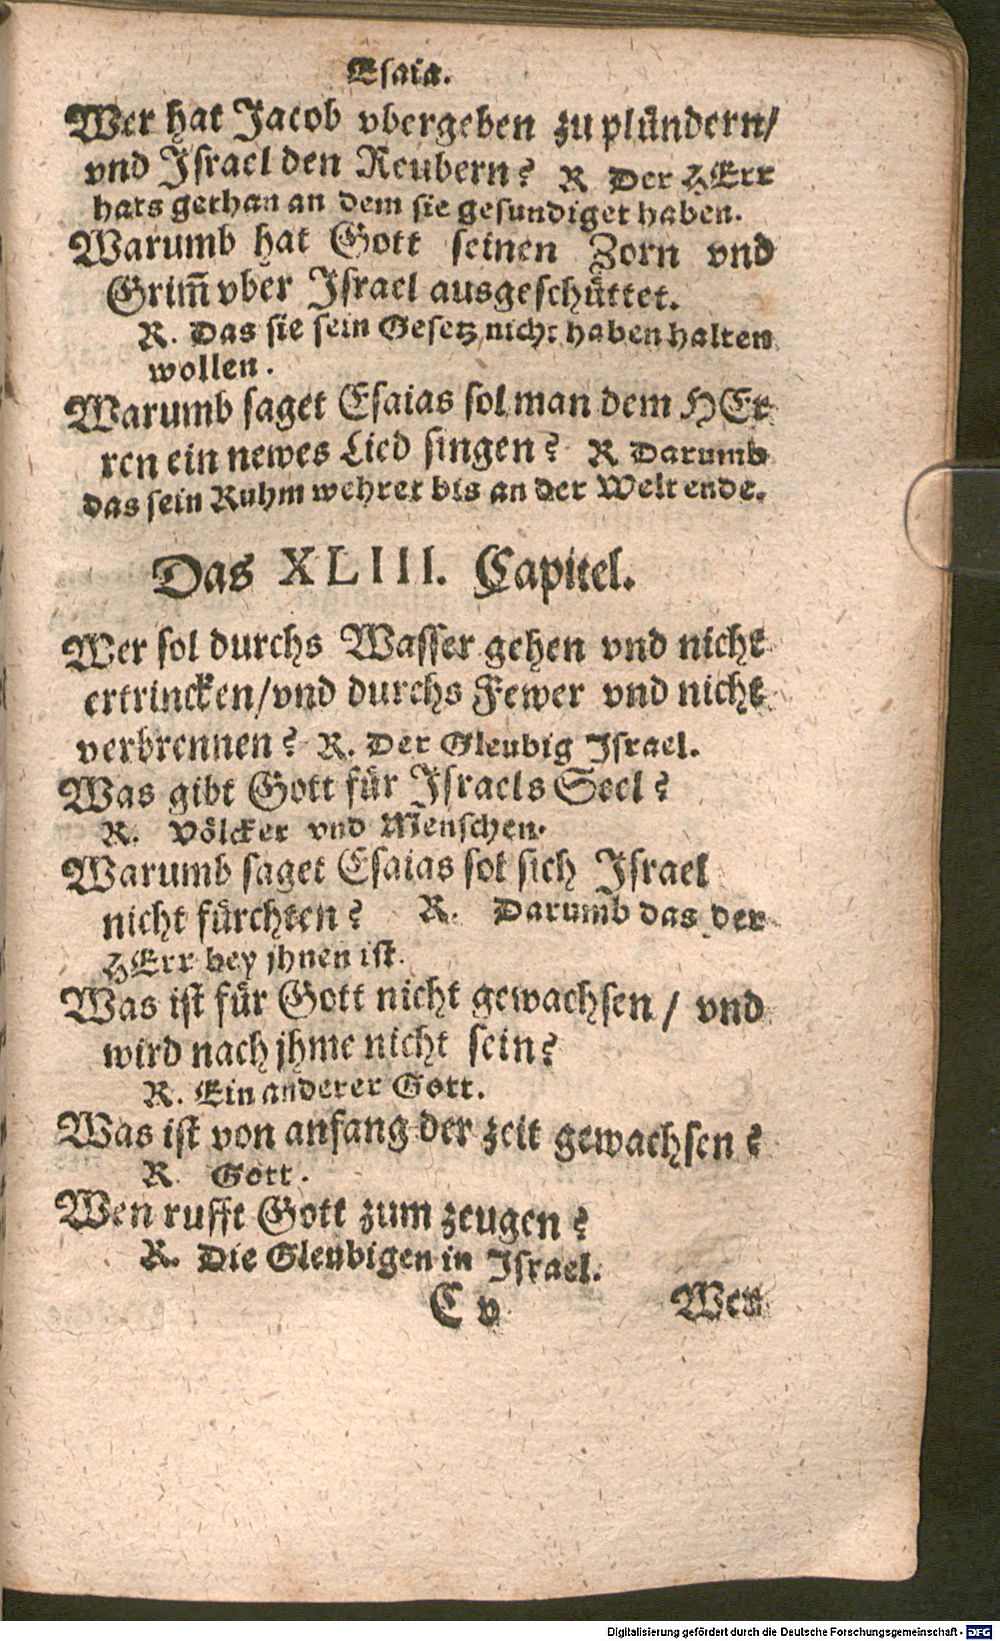 Esaia.
Wer hat Jacob vbergeben zu plündern/
vnd Israel den Reubern? R Der HErr
hats gethan an dem sie gesundiget haben.
Warumb hat Gott seinen Zorn vnd
Grim̃ vber Israel ausgeschüttet.
R. Das sie sein Gesetz nicht haben halten
wollen.
Warumb saget Esaias sol man dem HEr
ren ein newes Lied singen? R Darumb
das sein Ruhm wehret bis an der Welt ende.
Das XLIII. Capitel.
Wer sol durchs Wasser gehen vnd nicht
ertrincken/vnd durchs Fewer vnd nicht
verbrennen? R. Der Gleubig Israel.
Was gibt Gott für Israels Seel?
R. Völcker vnd Menschen.
Warumb saget Esaias sol sich Israel
nicht fürchten? R. Darumb das der
HErr bey jhnen ist.
Was ist für Gott nicht gewachsen / vnd
wird nach jhme nicht sein?
R. Ein anderer Gott.
Was ist von anfang der zeit gewachsen?
R Gott.
Wen rufft Gott zum zeugen?
R. Die Gleubigen in Israel.
C v Wen
Digitalisierung gefördert durch die Deutsche Forschungsgemeinschaft - DFG